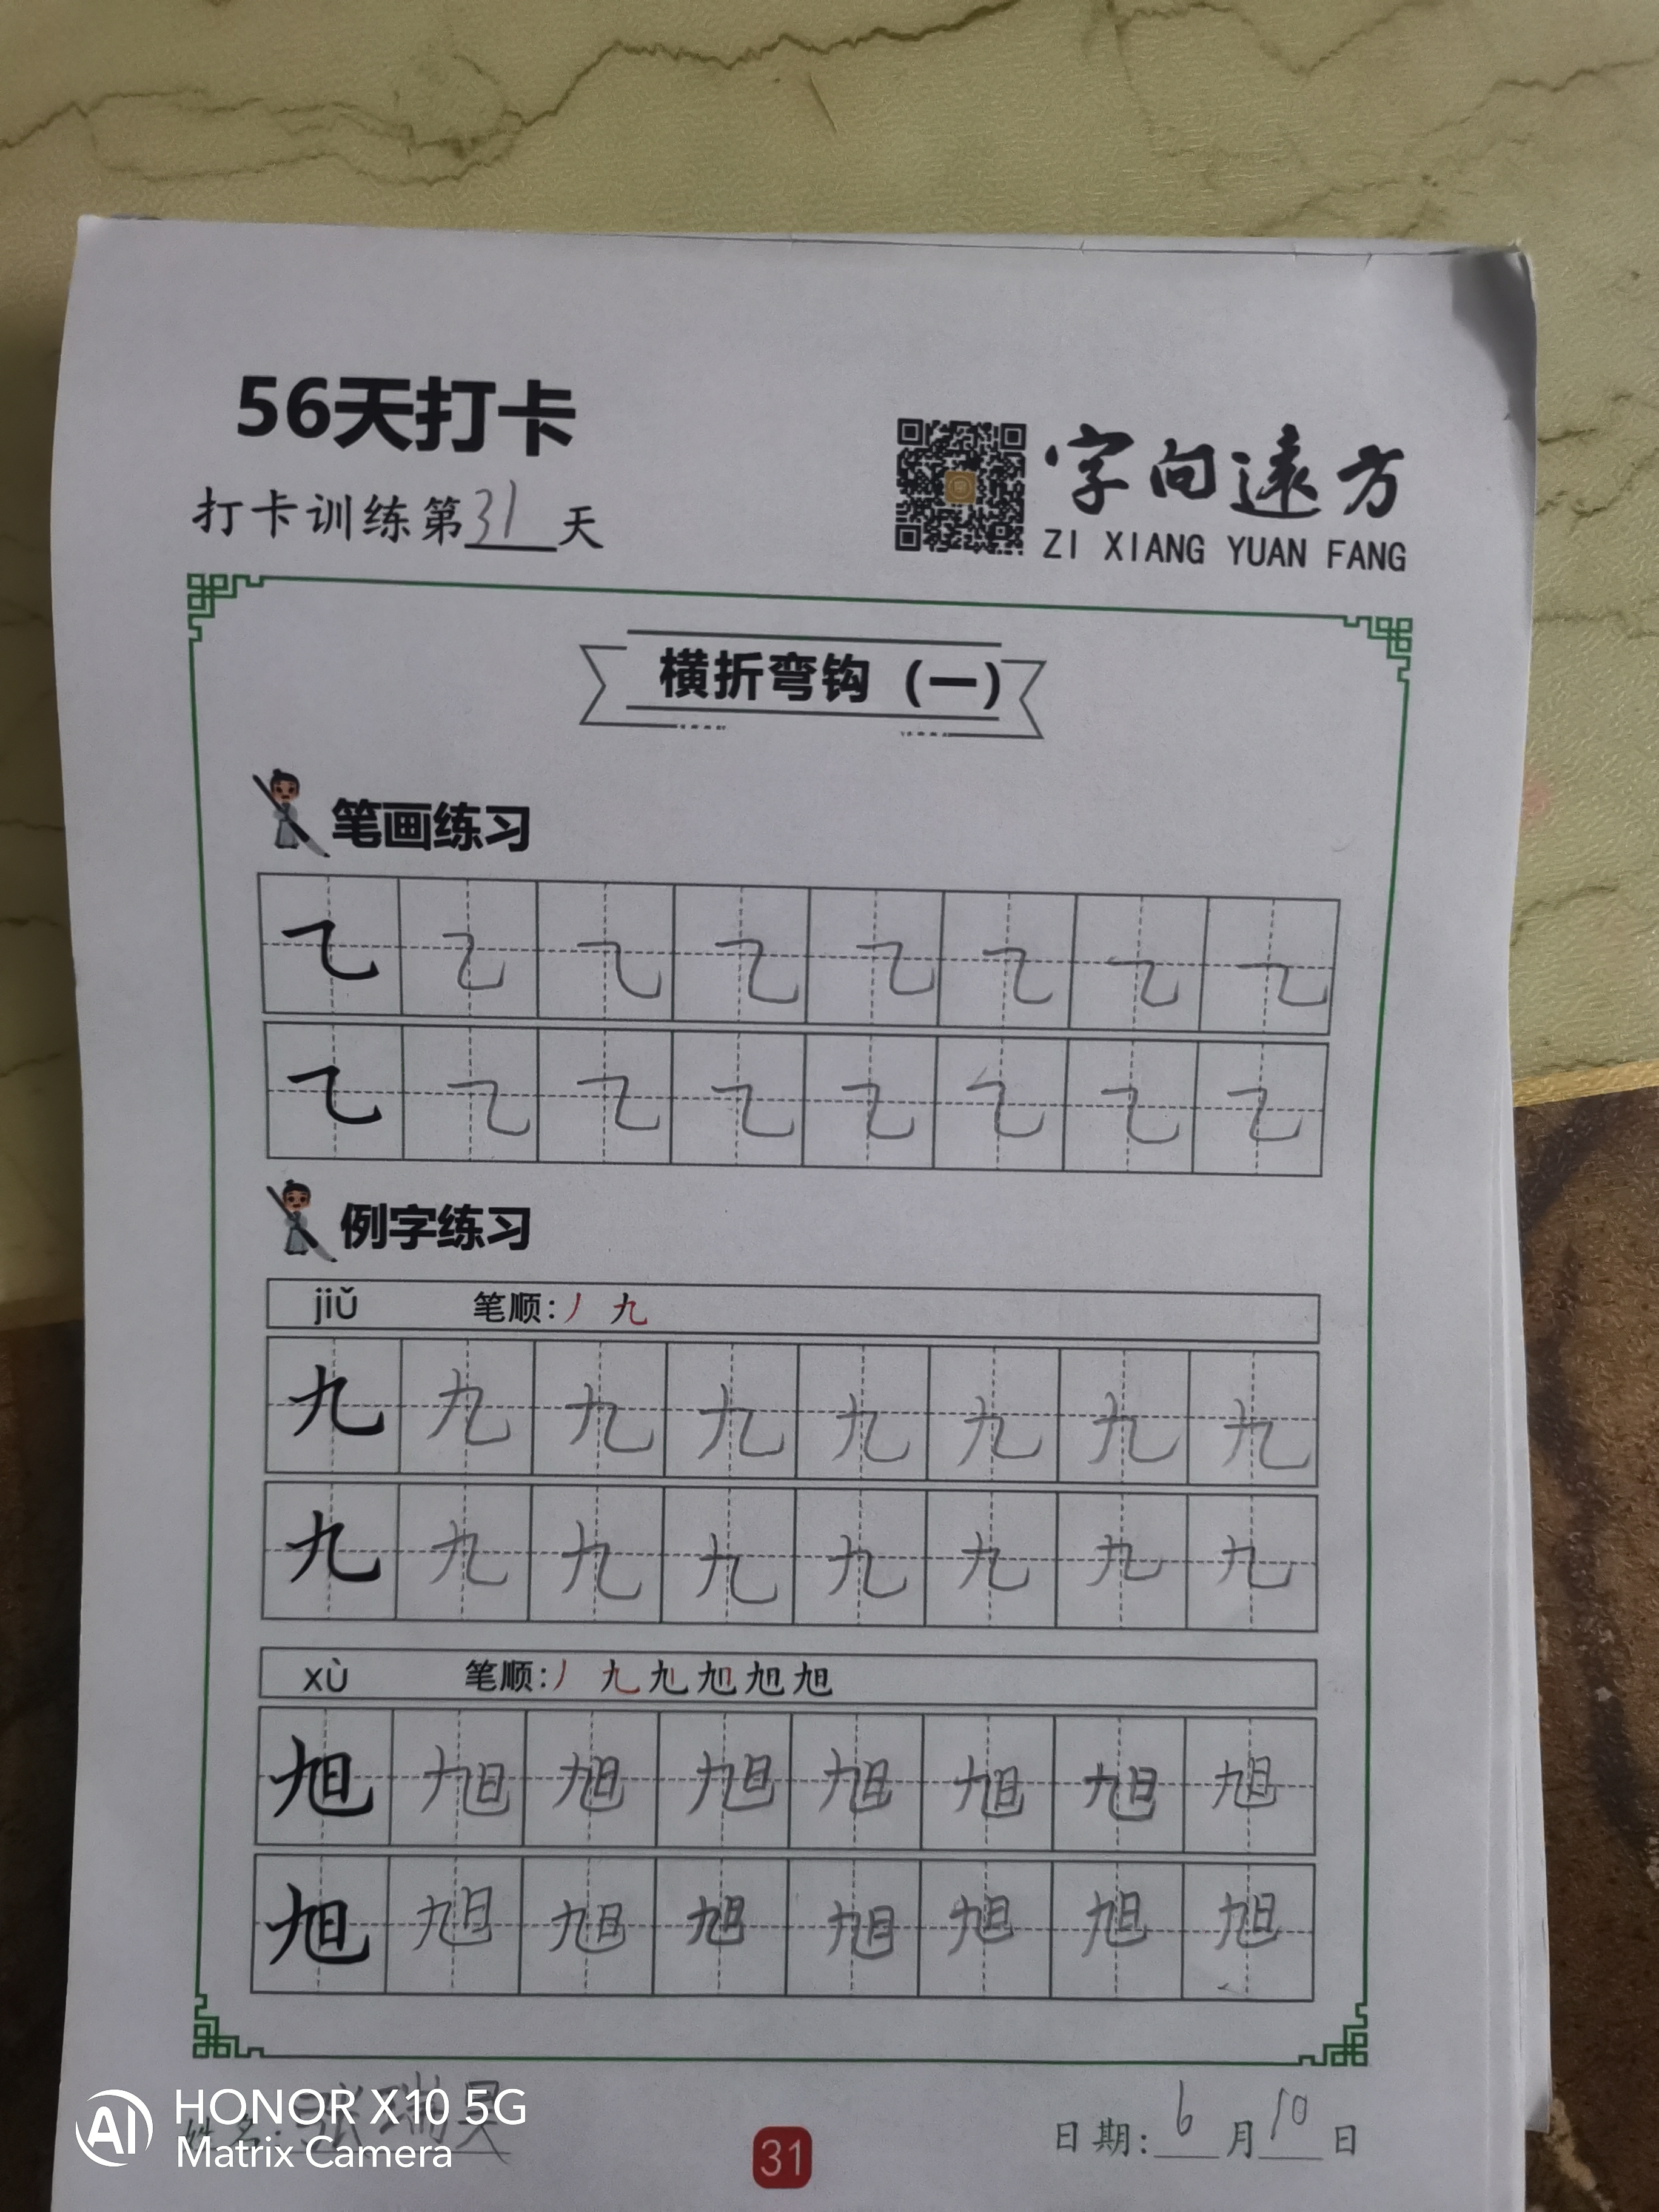 56天打卡
打卡训练第31天
字向远方
ZI XIANG YUAN FANG
横折弯钩（一）
笔画练习
㇈ ㇈ ㇈ ㇈ ㇈ ㇈ ㇈ ㇈
㇈ ㇈ ㇈ ㇈ ㇈ ㇈ ㇈ ㇈
例字练习
jiǔ 笔顺：丿 九
九 九 九 九 九 九 九 九
九 九 九 九 九 九 九 九
xù 笔顺：丿 九 旭 旭 旭 旭
旭 旭 旭 旭 旭 旭 旭 旭
旭 旭 旭 旭 旭 旭 旭 旭
姓名：张瑞昊
日期：6月10日
31
HONOR X10 5G
AI Matrix Camera